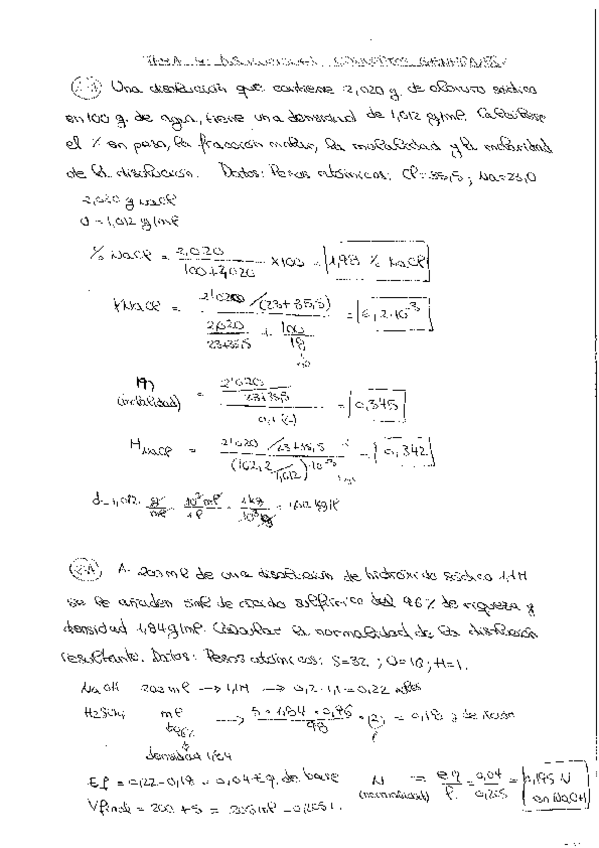 Una disolución que contiene 2,020 g. de cloruro sódico
en 100 g. de agua, tiene una densidad de 1,012 g/ml. Calcúlese
el % en peso, la fracción molar, la molalidad y la molaridad
de la disolución. Datos: Pesos atómicos: Cl=35,5; Na=23,0
2,020 g NaCl
= 1,012 g/ml
% NaCl = 2,020 / ×100 = 1,98 % NaCl
XNaCl = /(23+35,5) / 2,020 / 23+35,5 + 100 / 18 =
(molalidad) = 2'020 / 23+35,5 = 0,345
MNaCl = 2'020 /23+35,5 = 0,342
d=1,012 g/ml · 10³ml / 1l · 1kg / 10³g = kg/l
A 200 ml de una disolución de hidróxido sódico 1,1M
se le añaden 5ml de ácido sulfúrico del 96% de riqueza y
densidad 1,84g/ml. Calcular la normalidad de la disolución
resultante. Datos: Pesos atómicos: S=32; O=16; H=1.
NaOH 200 ml → 1,1M → 0,2·1,1=0,22
ml → 5·1,84·0,96 / 98 · 2 = 0,18
96%
densidad 1,84
= 0,22-0,18 = 0,04 Eq. de base N (normalidad) = eq / l = 0,04 / 0,205 = 0,195 N en NaOH
Vfinal = 200 + 5 = 205ml = 0,205 l.